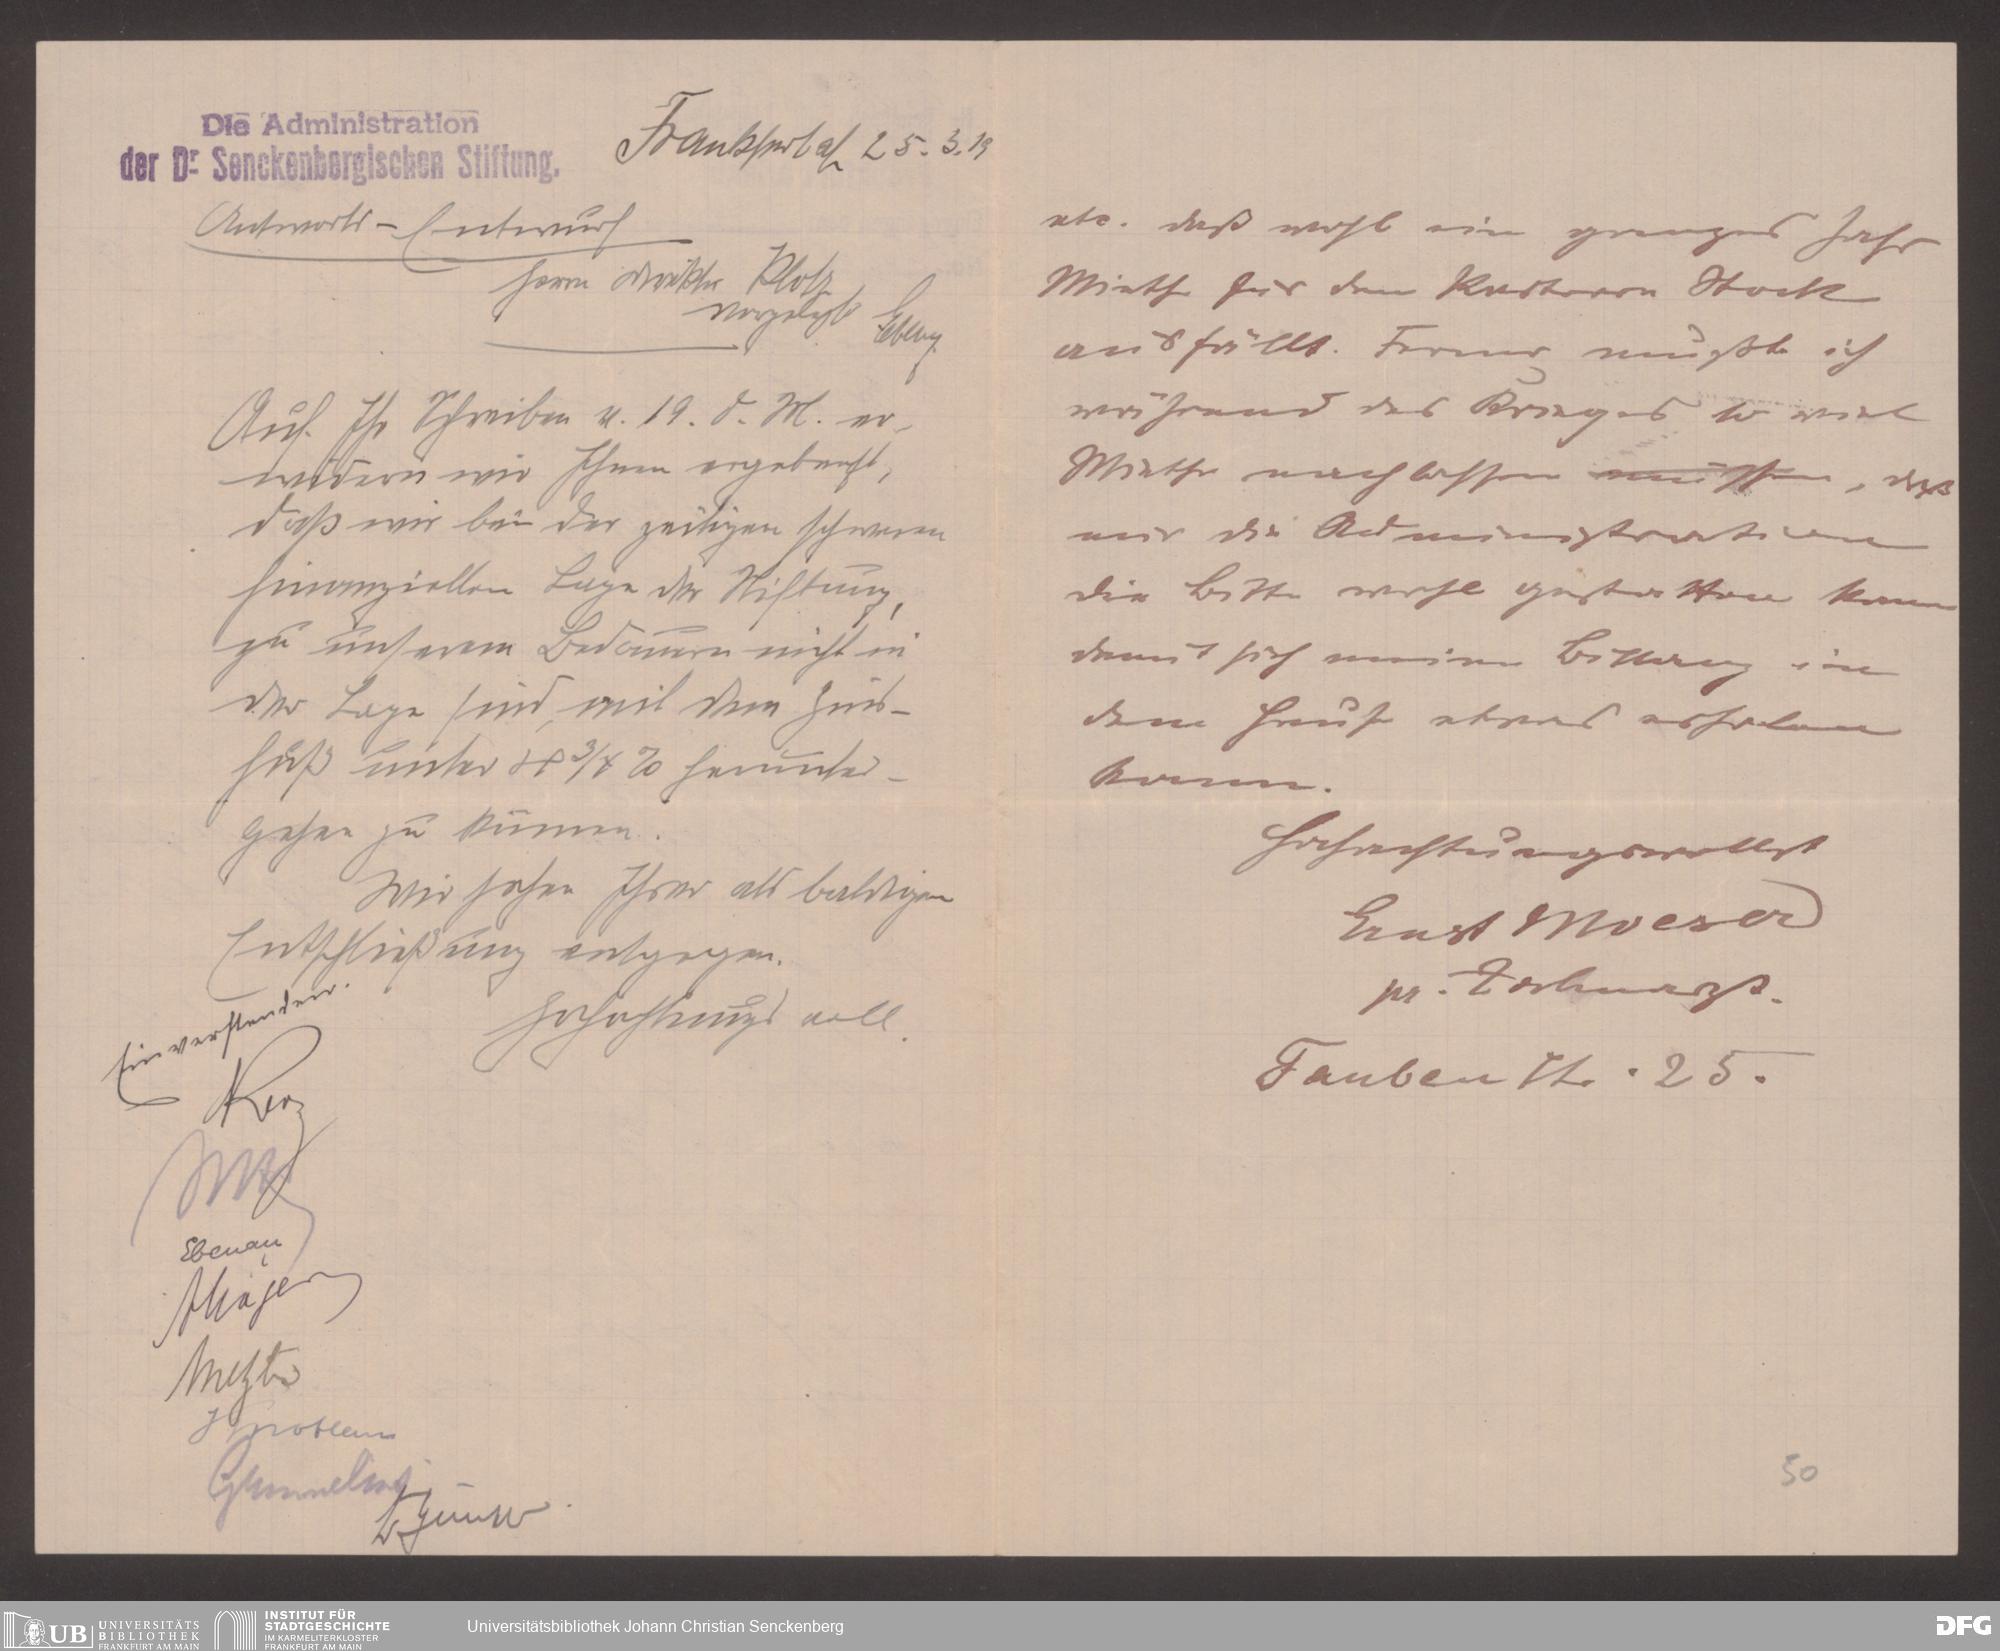 Die Administration
der Dr. Senckenbergischen Stiftung.
Frankfurt a/ 25.3.19
Antworts-Entwurf
Herrn Direktor Klotz
vorgelegt
Auf Ihr Schreiben v. 19. d. M. er-
widern wir Ihnen ergebenst,
daß wir bei der zeitigen schweren
finanziellen Lage der Stiftung,
zu unserem Bedauern nicht in
der Lage sind, mit dem Zins-
fuß unter 4 3/4 % herunter-
gehen zu können.
Wir sehen Ihrer als baldigen
Entschließung entgegen.
Hochachtungsvoll.
Einverstanden.
Ebenau
W
etc. daß wohl ein ganzes Jahr
Miethe für den Stock
ausfällt. Ferner mußte ich
während des Krieges so viel
Miethe nachlassen müssen, daß
mir die Administration
die Bitte wohl gestatten kann
damit sich meine in
dem Hause etwas erholen
kann.
Hochachtungsvollst
Ernst Moeser
pr. Zahnarzt.
Taubenstr. 25.
50
UB UNIVERSITÄTS
BIBLIOTHEK
FRANKFURT AM MAIN
INSTITUT FÜR
STADTGESCHICHTE
IM KARMELITERKLOSTER
FRANKFURT AM MAIN
Universitätsbibliothek Johann Christian Senckenberg
DFG